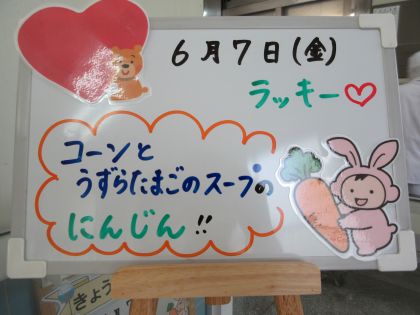 6月7日(金)
ラッキー♡
コーンと
うずらたまごのスープの
にんじん!!
きょう